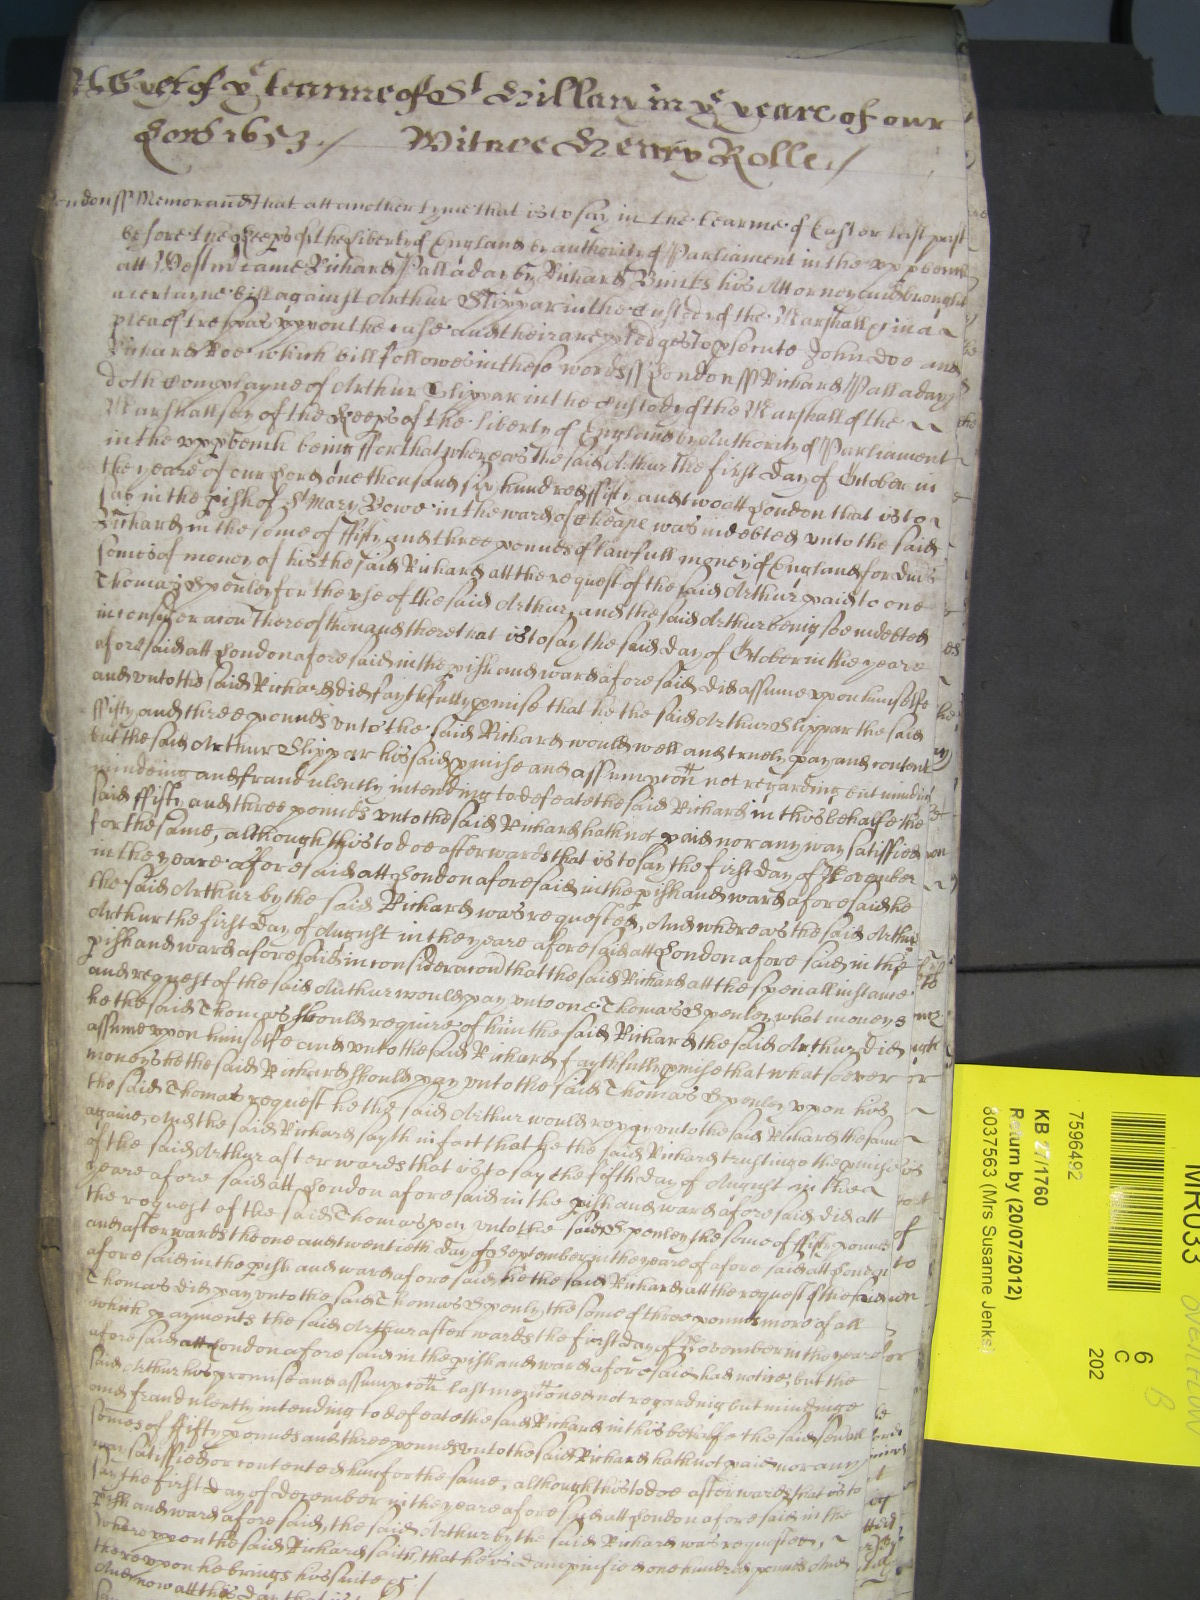 yet of ye tearme of St Hillary in ye yeare of our
Lord 1653 / Witnes Henry Rolle /
London ss Memorand That att another tyme that is to say in the tearme of Easter last past
before the Keepers of the liberty of England by authority of Parliament in the upper bench
att Westmr came Richard Palladay by Richard his Attorney and brought
a certayne bill against Arthur Slippar in the Custody of the Marshall &c in a
plea of trespas uppon the case and their are pledges to psecute John doe and
Richard Roe which bill followes in these words ss London ss Richard Palladay
doth complayne of Arthur Slippar in the Custody of the Marshall of the
Marshallsey of the Keepers of the liberty of England by Authority of Parliament
in the upp bench being ffor that whereas the said Arthur the first day of October in
the yeare of our Lord one thousand six hundred fifty and two att London that is to
say in the pish of St Mary Bowe in the ward of Cheape was indebted unto the said
Richard in the some of ffifty and three pounds of lawfull money of England for divs
somes of money of his the said Richard att the request of the said Arthur paid to one
Thomas Spenley for the use of the said Arthur, and the said Arthur being soe indebted
in consideracon Thereof then and there that is to say the said day of October in the yeare
aforesaid att London aforesaid in the pish and ward aforesaid did assume upon himselfe
and unto the said Richard did faythfully pmise that he the said Arthur Slippar the said
ffifty and three pounds unto the said Richard would well and truely pay and content
but the said Arthur Slippar his said pmise and assumpcon not regarding but
mindeing and fraudulently intending to defeate the said Richard in this behalfe the
said ffifty and three pounds unto the said Richard hath not paid nor any way satisfied
for the same, although this to doe afterwards that is to say the first day of November
in the yeare aforesaid att London aforesaid in the pish and ward aforesaid he
the said Arthur by the said Richard was requested, And whereas the said Arthur
Arthur the first day of August in the yeare aforesaid att London aforesaid in the
pish and ward aforesaid in consideracon that the said Richard att the speciall instance
and request of the said Arthur would pay unto one Thomas Spenley what moneys
he the said Thomas should require of him the said Richard the said Arthur did
assume upon himselfe and unto the said Richard faythfully pmise that what soever
moneys he the said Richard should pay unto the said Thomas Spenley upon his
the said Thomas request he the said Arthur would repay unto the said Richard the same
againe, And the said Richard sayth in fact that he the said Richard trusting to the pmise
of the said Arthur afterwards that is to say the fifth day of August in the
yeare aforesaid att London aforesaid in the pish and ward aforesaid did att
the request of the said Thomas pay unto the said Spenley the some of ffifty pounds
and afterwards the one and twentieth day of September in the yeare aforesaid att London
aforesaid in the pish and ward aforesaid he the said Richard att the request of the said
Thomas did pay unto the said Thomas Spenly the some of three pounds more of all
which payments the said Arthur afterwards the first day of November in the yeare
aforesaid att London aforesaid in the pish and ward aforesaid had notice, but the
said Arthur his promise and assumpcon last mencioned not regarding but mindinge
and fraudulently intending to defeate the said Richard in this behalfe the said sevall
somes of ffifty pounds and three pounds unto the said Richard hath not paid nor any
way satisfied or contented him for the same, although this to doe afterwards that is to
say the first day of december in the yeare aforesaid att London aforesaid in the
pish and ward aforesaid, the said Arthur by the said Richard was requested,
whereuppon the said Richard saith, that he is dampnified one hundred pounds And
thereupon he brings his suite &c /
And now att this day that is
MR033
7596492
KB 27/1760
Return by (20/07/2012)
8037563 (Mrs Susanne Jenks)
6
C
202